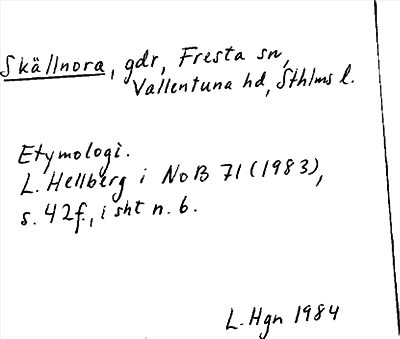 Skällnora, gdr, Fresta sn,
Vallentuna hd, Sthlms l.
Etymologi.
L. Hellberg i NoB 71 (1983),
s. 42f., i sht n. 6.
L. Hgn 1984